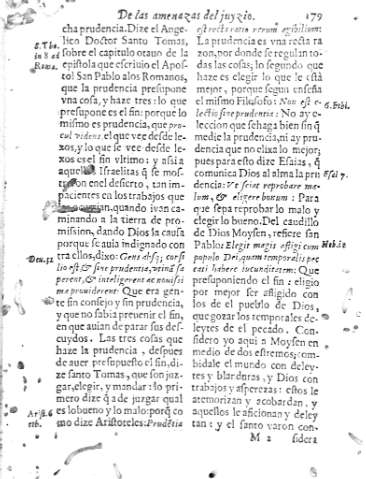 De las amenazas del juyzio. 179
cha prudencia. Dize el Ange-
lico Doctor Santo Tomas,
sobre el capitulo otauo de la
epistola que escriuio el Apos-
tol San Pablo a los Romanos,
que la prudencia presupone
vna cosa, y haze tres: lo que
presupone es el fin: porque lo
mismo es prudencia, que pro-
cul videns, el que vee desde le-
xos, y lo que se vee desde le-
xos es el fin vltimo: y assi a
aquellos Israelitas q̃ se mos-
traron en el desierto, tan im-
pacientes en los trabajos que
quando iuan ca-
minando a la tierra de pro-
mission, dando Dios la causa
porque se auia indignado con
tra ellos, dixo: Gens absq; consi
lio est & sine prudentia, vtinã sa
perent, & intelligerent ac nouissi
ma prouiderent: Que era gen-
te sin consejo y sin prudencia,
y que no sabia preuenir el fin,
en que auian de parar sus des-
cuydos. Las tres cosas que
haze la prudencia, despues
de auer presupuesto el fin, di-
ze santo Tomas, que son juz-
gar, elegir, y mandar: lo pri-
mero dize q̃ a de juzgar qual
es lo bueno y lo malo: porq̃ co
mo dize Aristoteles: Prudẽtia
S. Tho.
in 8. ad
Roma.
Deu. 32
Arist. 6
eth.
est recta ratio rerum agibilium:
La prudencia es vna recta ra
zon, por donde se regulan to-
das las cosas; lo segundo que
haze es elegir lo que le està
mejor, porque segun enseña
el mismo Filosofo: Non est e-
lectio sine prudentia: No ay e-
leccion que se haga bien sin q̃
medie la prudencia, ni ay pru-
dencia que no elixa lo mejor;
pues para esto dize Esaias, q̃
comunica Dios al alma la pru
dencia: Vt sciat reprobare ma-
lum, & eligere bonum: Para
que sepa reprobar lo malo y
elegir lo bueno. Del caudillo
de Dios Moysen, refiere san
Pablo: Elegit magis affligi cum
populo Dei, quam temporalis pec
cati habere iucunditatem: Que
presuponiendo el fin: eligio
por mejor ser afligido con
los de el pueblo de Dios,
que gozar los temporales de-
leytes de el pecado. Con-
sidero yo aqui a Moysen en
medio de dos estremos; com-
bidale el mundo con deley-
tes y blanduras, y Dios con
trabajos y asperezas: estos le
atemorizan y acobardan, y
aquellos le aficionan y deley
tan: y el santo varon con-
6. Ethi.
Esai 7.
Heb. 12
M 2 sidera